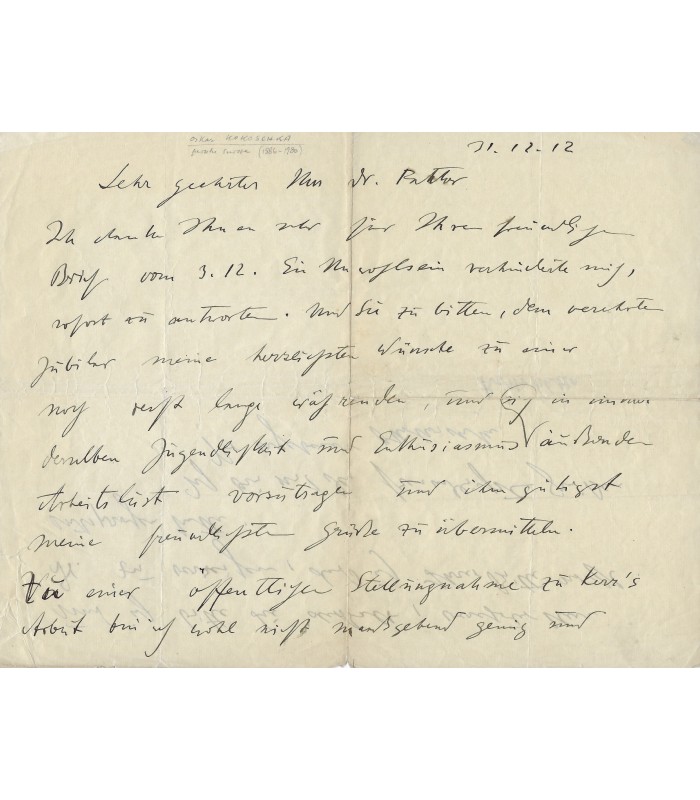 Oskar KOKOSCHKA
(1886-1980)
31.12.12
Sehr geehrter Herr Dr.
Ich danke Ihnen sehr für Ihren freundlichen
Brief vom 3.12. Ein Unwohlsein verhinderte mich,
sofort zu antworten. Und Sie zu bitten, dem verehrten
Jubilar meine herzlichsten Wünsche zu einer
noch recht lange währenden, und sich in immer
derselben Jugendlichkeit und Enthusiasmus äußernden
Arbeitslust vorzutragen und ihm gütigst
meine freundlichsten Grüße zu übermitteln.
Zu einer öffentlichen Stellungnahme zu Kerr's
Arbeit bin ich wohl nicht maßgebend genug und